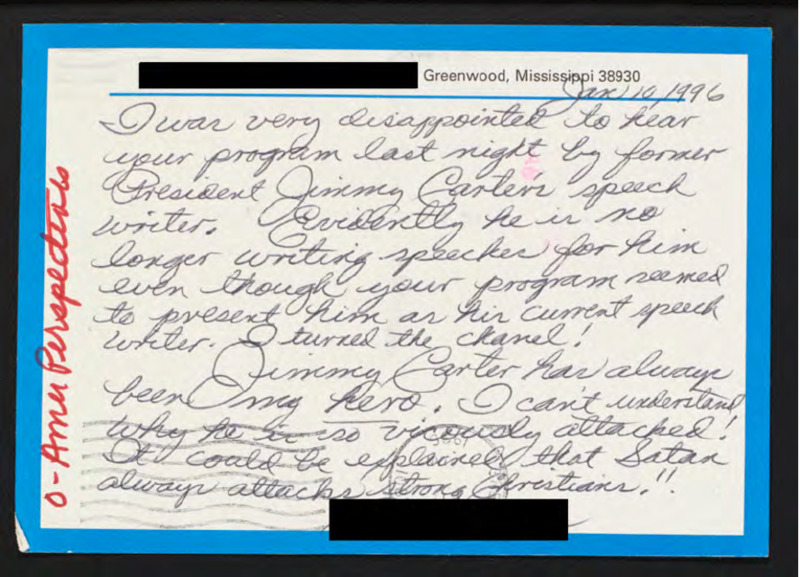 Greenwood, Mississippi 38930
Jan 10, 1996
I was very disappointed to hear
your program last night by former
President Jimmy Carter's speech
writer. Evidently he is no
longer writing speeches for him
even though your program seemed
to present him as his current speech
writer. I turned the chanel!
Jimmy Carter has always
been my hero. I can't understand
why he is so vicously attacked!
It could be explained that Satan
always attacks strong Christians.!!
0-Amer Perspectives